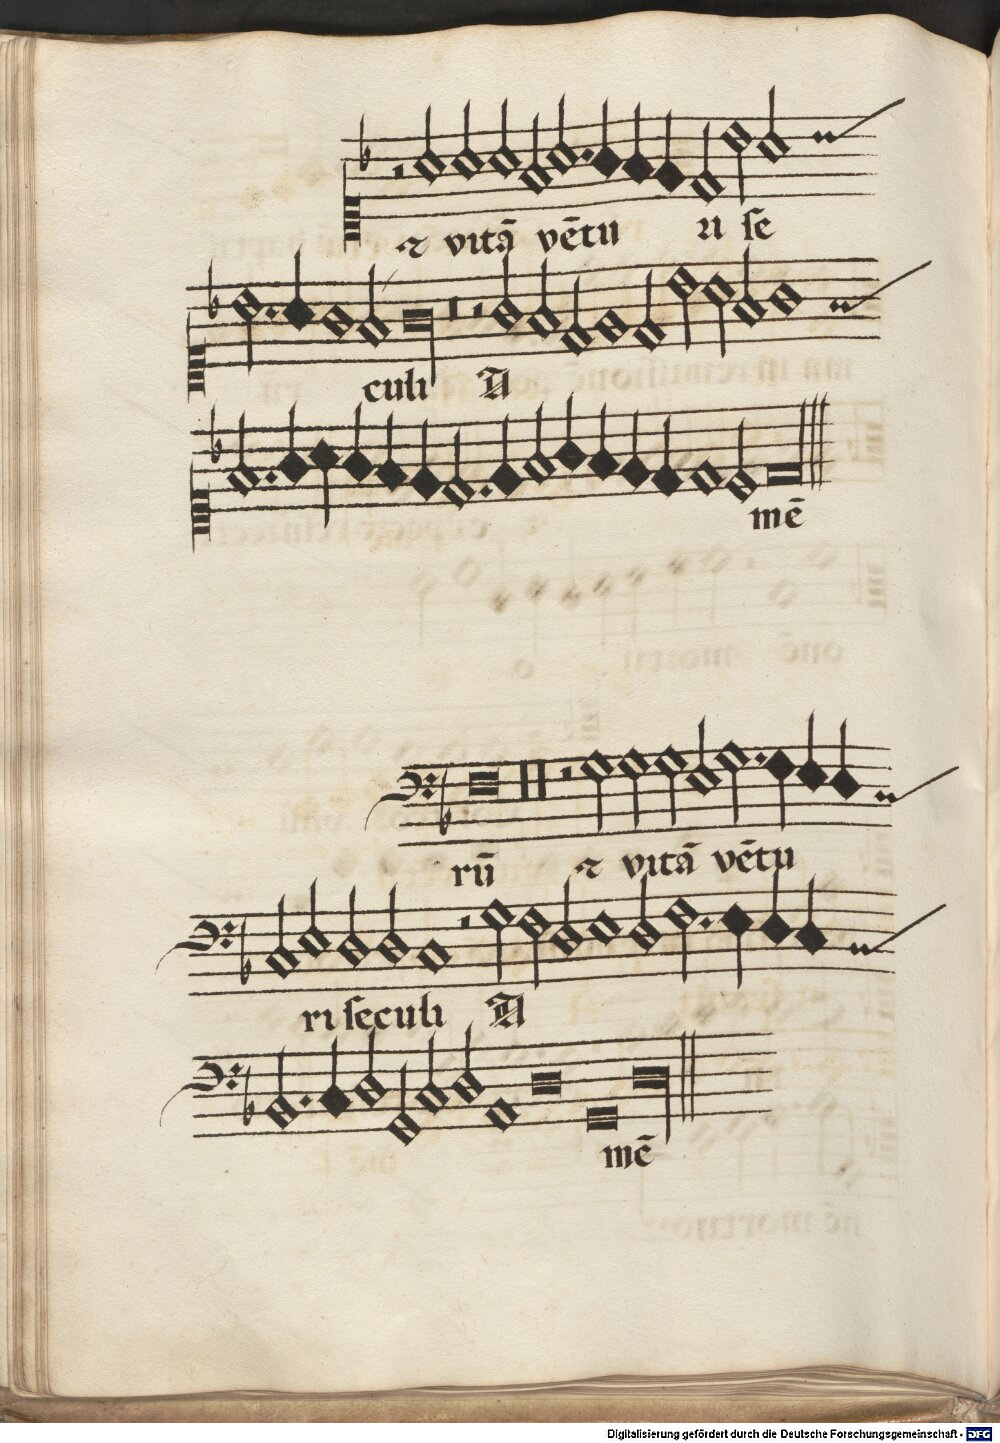 ⁊ vitā vētu ri ſe
culi A
mē
rū ⁊ vitā vētu
ri ſeculi A
mē
Digitalisierung gefördert durch die Deutsche Forschungsgemeinschaft - DFG